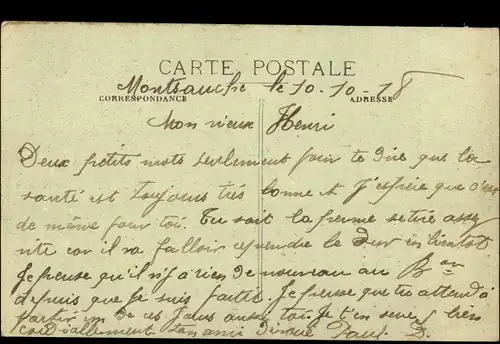 CARTE POSTALE
Montsauche le 10-10-18
CORRESPONDANCE ADRESSE
Mon vieux Henri
Deux petits mots seulement pour te dire que ta
santé est toujours très bonne et j'espère que c'est
de même pour toi. Tu sait la perme se tire assez
vite car il va falloir reprendre le Dur en bientot
Je pense qu'il n'y a rien de nouveau au Bon
depuis que je suis partit. Je pense que tu attend à
partir un de ces jours aussi toi. Je t'en serre bien
cordiallement ton ami Paul D.